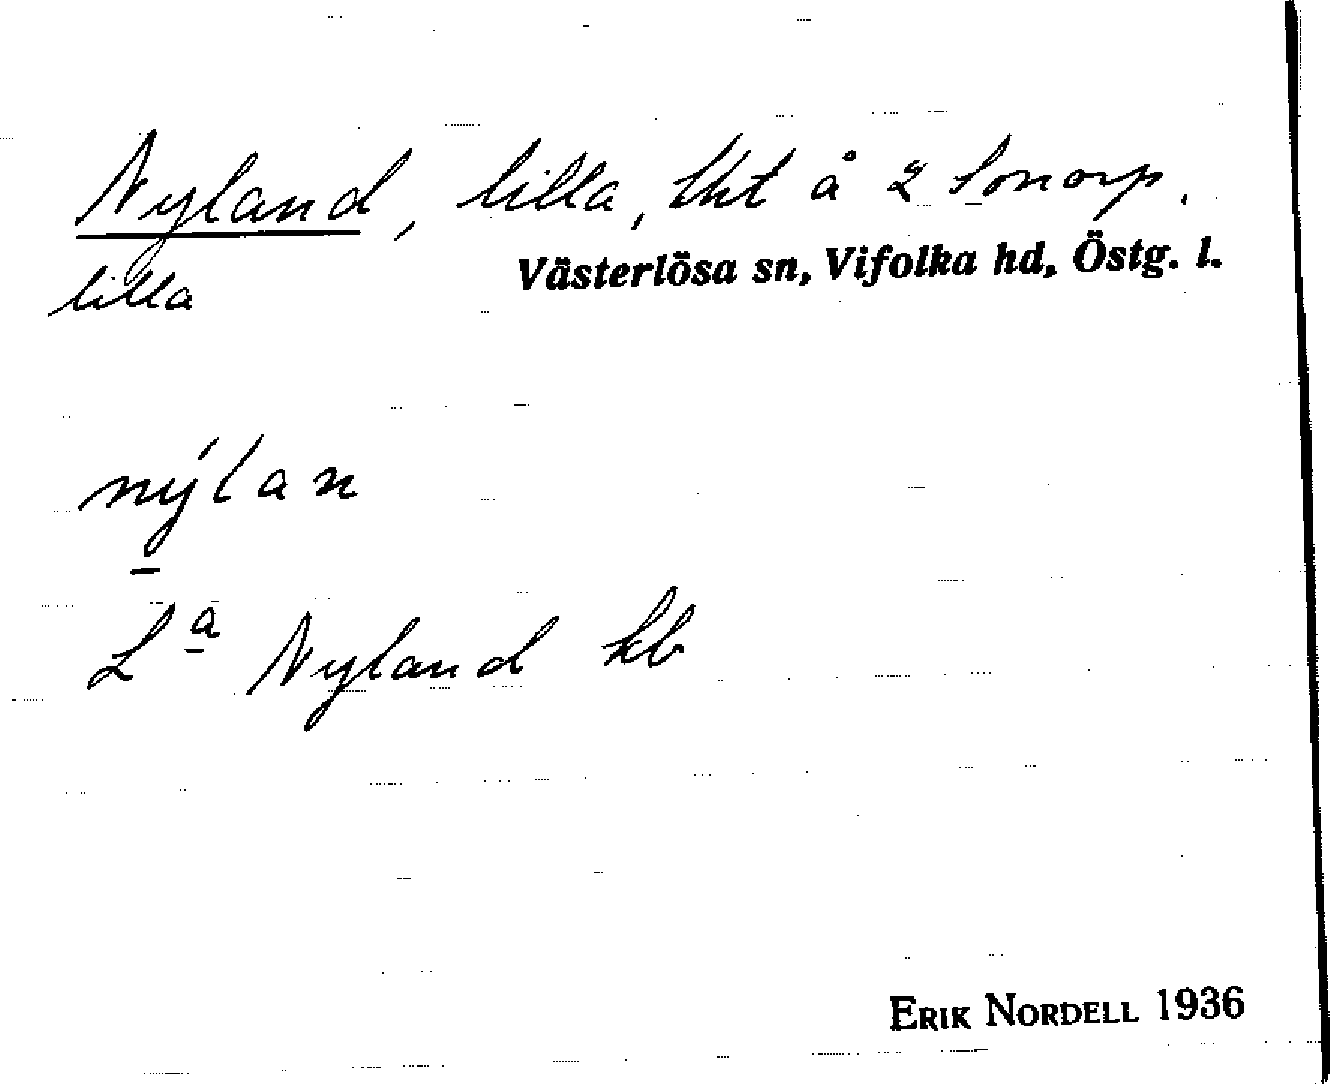 Nyland, lilla, lht å 2 Smorp.
lilla
Västerlösa sn, Vifolka hd, Östg. l.
nýlan
Lª Nyland kb
ERIK NORDELL 1936